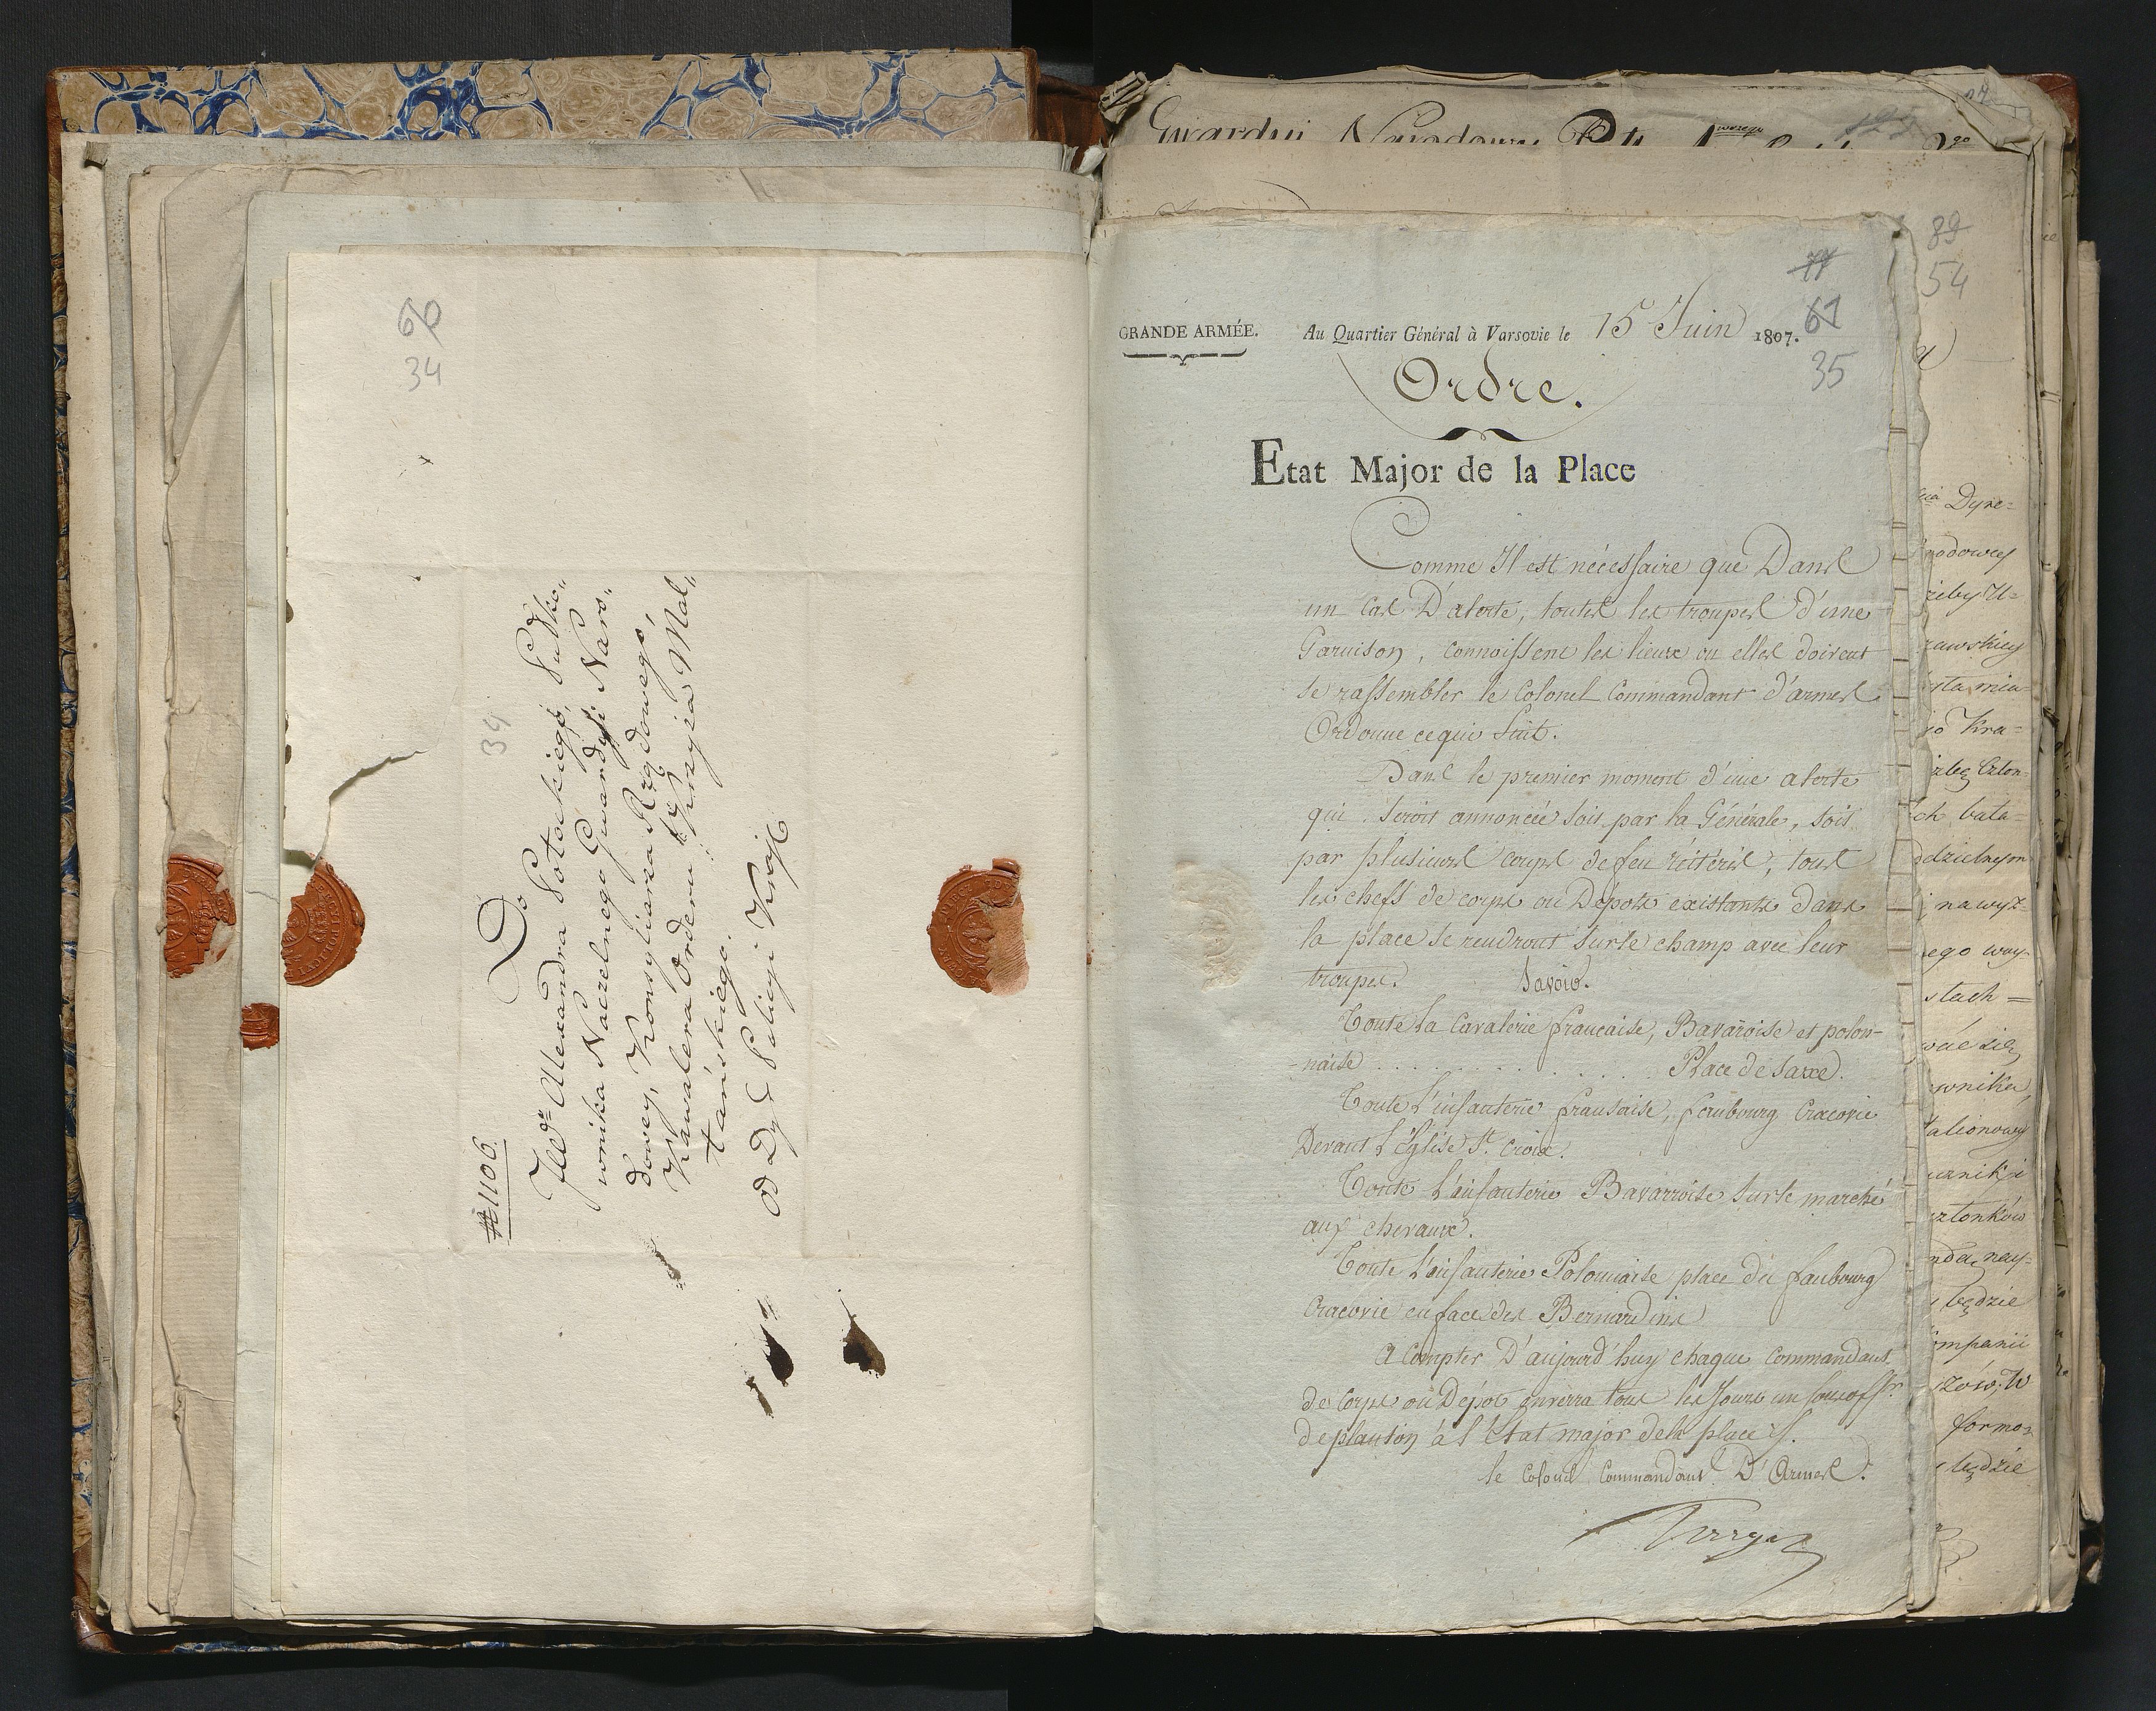 60
34
34
№ 1106.
Do
JWo Alexandra Potockiego, Pułko„
wnika Naczelnego Gwardyi Naro„
dowey, Konsyliarza Rządowego,
Kawalera Orderu Sgo Krzyża Mal„
tańskiego.
od Dyr Policyi Kraj
Gwardyi Narodowey
89
54
77
61
35
GRANDE ARMÉE. Au Quartier Général à Varsovie le 15 Juin 1807.
Ordre.
Etat Major de la Place
Comme Il est nécessaire que Dans
un Cas D'alerte, toutes les troupes d'une
Garnison, connoissent les lieux ou elles doivent
se rassembler le Colonel Commandant d'armes
Ordonne ce qui Suit.
Dans le premier moment d'une alerte
qui seroit annoncée soit par la Générale, soit
par plusieurs coups de feu réitérés, tous
les chefs de corps ou Dépots existants dans
la place se rendront sur le champ avec leur
troupes. Savoir.
Toute la Cavalerie francaise, Bavaroise et polon-
-naise . . . . . . . . . . . . . Place de Saxe.
Toute l'infanterie fransaise, faubourg Cracovie
Devant l'Eglise St. Croix.
Toute l'infanterie Bavarroise sur le marché
aux chevaux.
Toute l'infanterie Polonnaise place du faubourg
Cracovie en face des Bernardins
A Compter D'aujourd'huy chaque Commandant
de Corps ou Dépot enverra tous les jours un sous off.r
de planton à l'Etat major de la place
le Colonel Commandant D'Armes.
Dyre=
rodowey
żeby U=
rawskiey
Kra=
człon=
ch bata=
ddzielnym
nawyż=
ego way
stach =
wnika
członków
będzie
ompanii
formo=
będzie